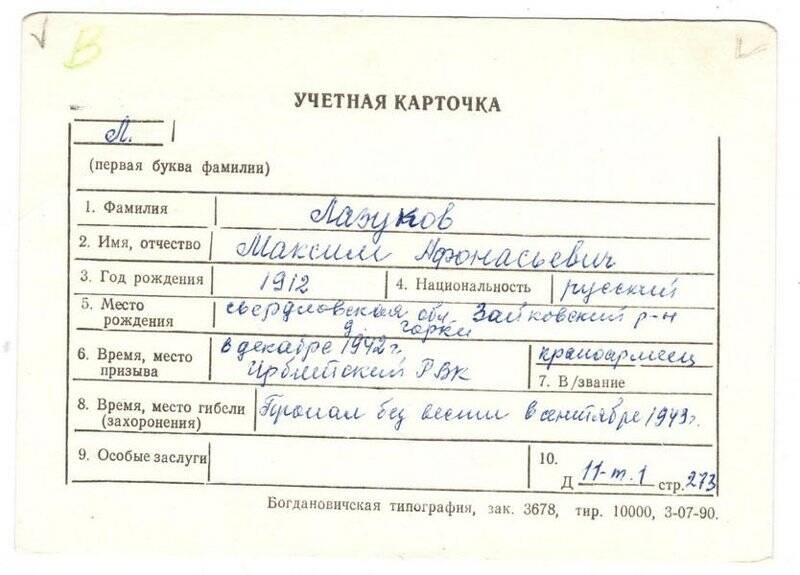 В
УЧЕТНАЯ КАРТОЧКА
Л.
(первая буква фамилии)
1. Фамилия Лазуков
2. Имя, отчество Максим Афонасьевич
3. Год рождения 1912 4. Национальность русский
5. Место рождения свердловская обл. Зайковский р-н
д. горки
6. Время, место призыва в декабре 1942 г. красноармеец
Ирбитский РВК 7. В/звание
8. Время, место гибели (захоронения) Пропал без вести в сентябре 1943 г.
9. Особые заслуги 10.
Д 11-т.1 стр. 273
Богдановичская типография, зак. 3678, тир. 10000, 3-07-90.